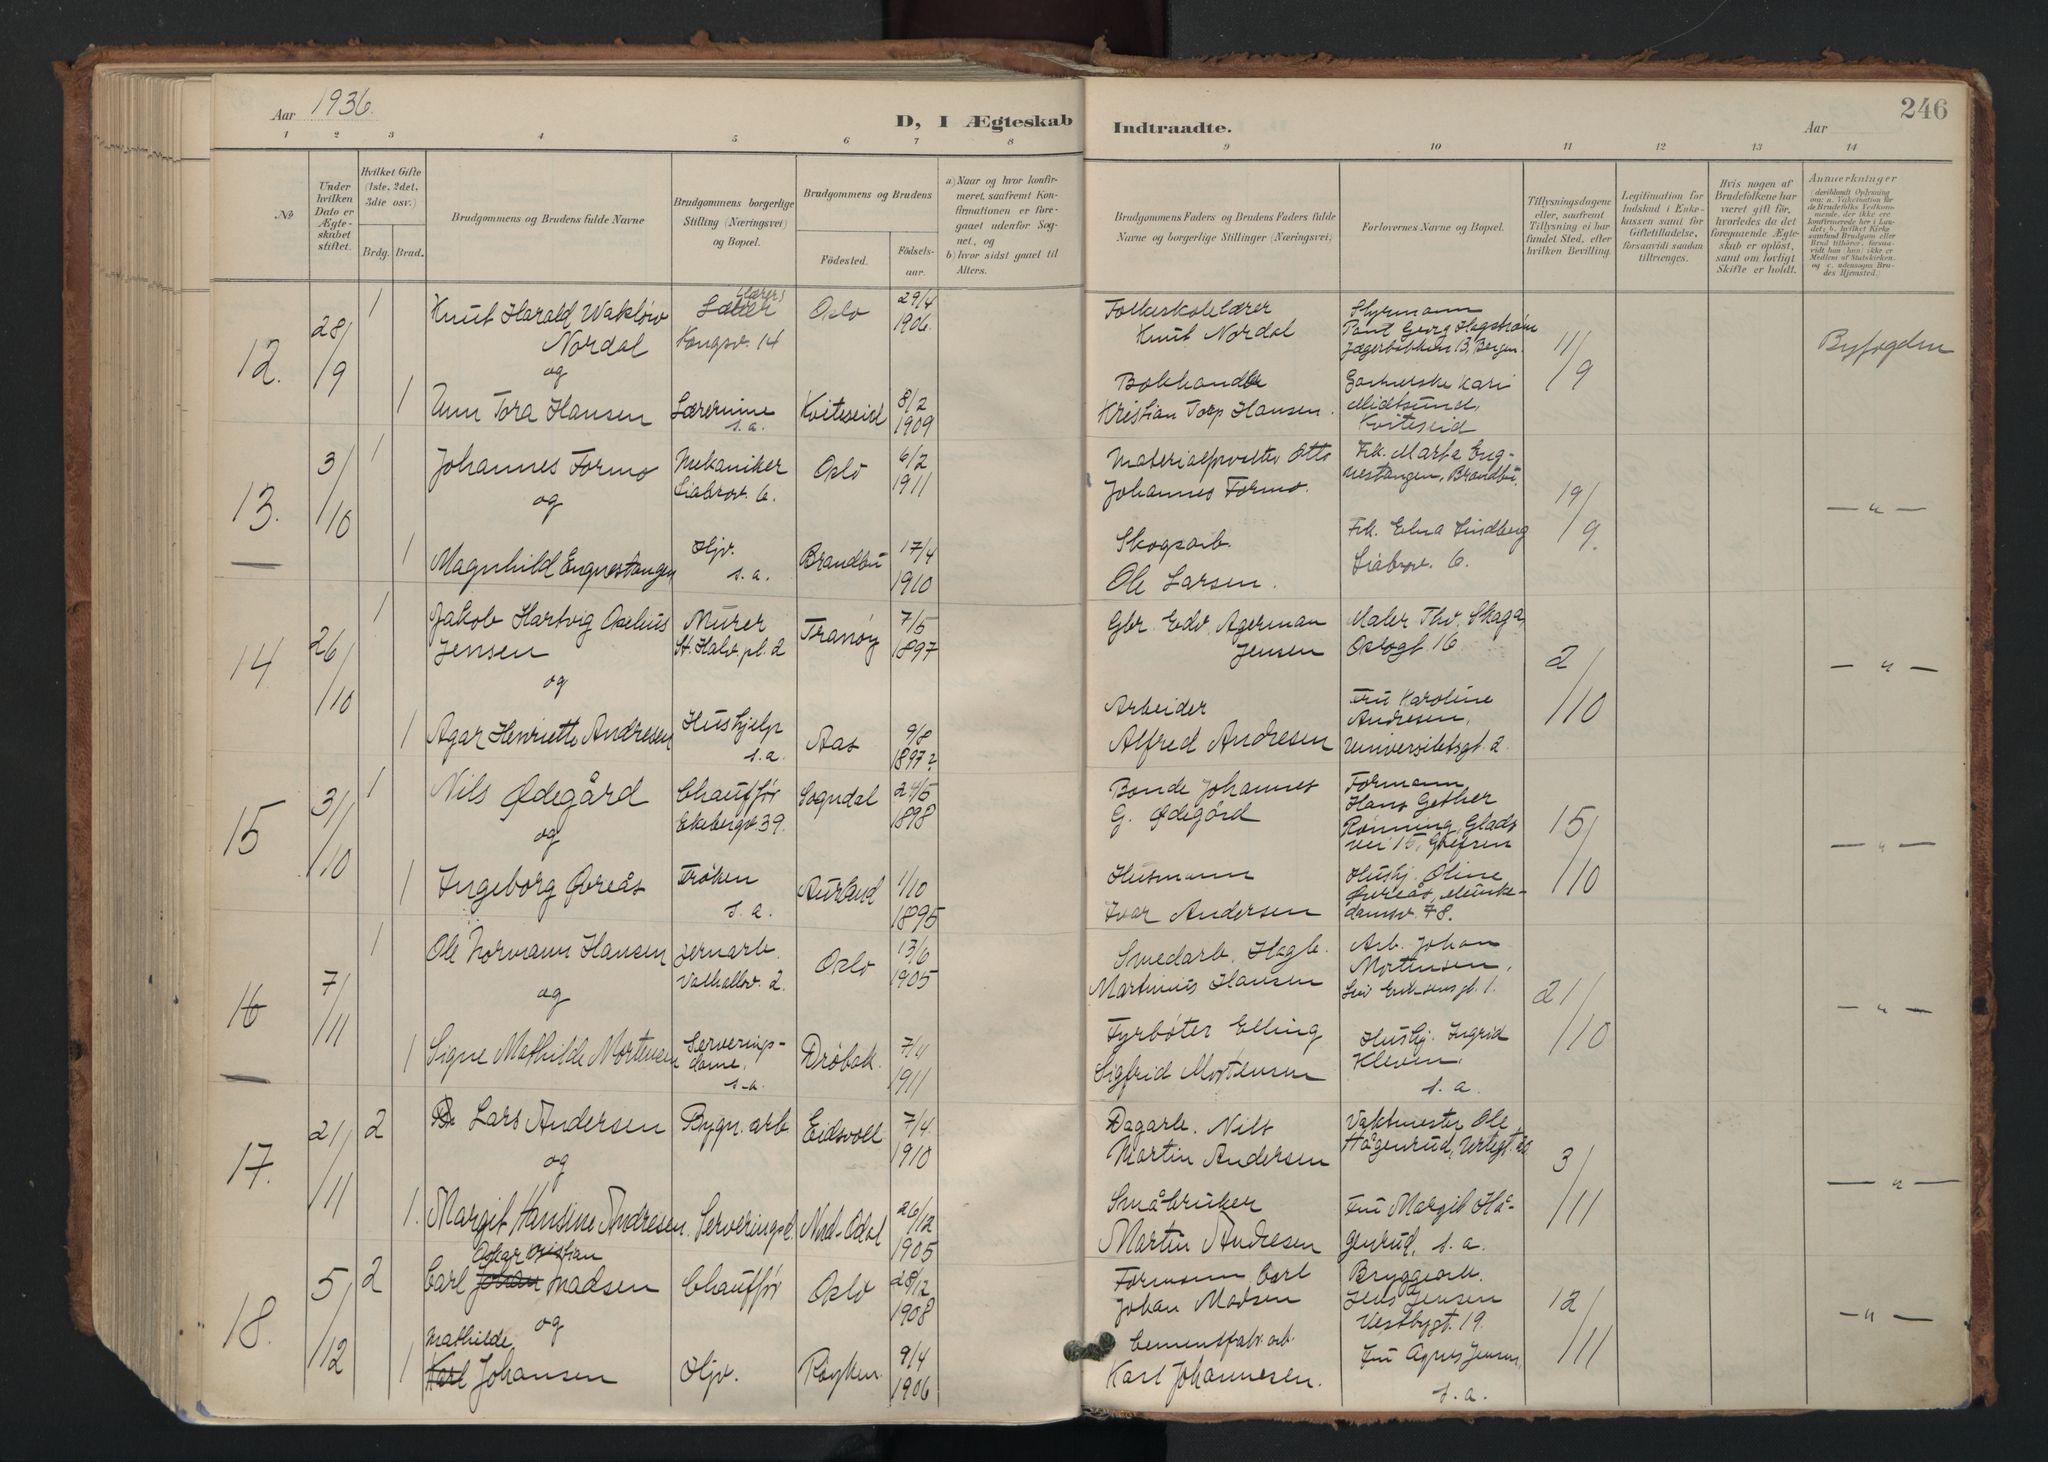 Aar 1936.
D, I Ægteskab Indtraadte.
Aar
246
1 2 3 4 5 6 7 8 9 10 11 12 13 14
No
Under hvilken Dato er Ægteskabet stiftet.
Hvilket Gifte (1ste, 2det, 3die osv.)
Brdg. Brud.
Brudgommens og Brudens fulde Navne
Brudgommens borgerlige Stilling (Næringsvei) og Bopæl.
Brudgommens og Brudens
Födested.
Födselsaar.
a) Naar og hvor konfirmeret, saafremt Konfirmationen er foregaaet udenfor Sognet, og
b) hvor sidst gaaet til Alters.
Brudgommens Faders og Brudens Faders fulde Navne og borgerlige Stillinger (Næringsvei)
Forlovernes Navne og Bopæl.
Tillysningsdagene eller, saafremt Tillysning ei har fundet Sted, efter hvilken Bevilling.
Legitimation for Indskud i Enkekassen samt for Giftetilladelse, forsaavidt saadan tiltrænges.
Hvis nogen af Brudefolkene har været gift før, hvorledes da det foregaaende Ægteskab er opløst, samt om lovligt Skifte er holdt.
Anmærkninger
12. 28/9 1 Knut Harald
Nordal
og
Lærer
Kongsv. 14
Oslo 29/4 1906.
Folkeskolelærer
Knut Nordal
Styrmann
Georg Hagstrøm
Bergen.
11/9 Byfogden
1 Unn Tora Hansen Lærerinne s.a. Kviteseid 8/2 1909
Kristian Torp Hansen.
Kari
Midtsund,
Kviteseid
13. 3/10 1 Johannes Formo
og
Mekaniker
Liabrov. 6. Oslo 6/2 1911
Otto
Johannes Formo.
Frk. Marta Engnestangen, Brandbu.
19/9. — " —
1 Magnhild Engnestangen Hjv. s.a. Brandbu 17/4 1910
Skogsarb.
Ole Larsen.
Frk. Edna Lindberg
Liabrov. 6.
14. 26/10 1 Jakob Hartvig
Jensen
og
Murer
St. Halv. pl. 2 Tranøy 7/5 1897
Gbr. Edv. Agerman
Jensen
Maler Thv. Skaga,
Oslogt 16
2/10 — " —
1 Agar Henriette Andresen Hushjelp s.a. Aas 9/8 1897?
Arbeider
Alfred Andresen
Fru Karoline
Andresen,
Universitetsgt. 2.
15 31/10 1 Nils Ødegård
og
Chauffør
Ekebergv. 39. Sogndal 24/5 1898
Bonde Johannes
G. Ødegård
Formann
Hans Gether
Rønning, Glads
vei 15, Grefsen
15/10 — " —
1 Ingeborg Øvreås Frøken s.a. Aurland 1/10 1895
Husmann
Ivar Andersen
Hushj. Oline
Øvreås, Munkedamsv. 78.
16 7/11 1 Ole Normann Hansen
og
Jernarb.
Valhallav. 2. Oslo 13/6 1905
Smedarb. Hagb.
Martinius Hansen
Arb. Johan
Mortensen,
Leiv Eriksens gt. 1.
21/10 — " —
1 Signe Mathilde Mortensen Serveringsdame, s.a. Drøbak. 7/4 1911
Fyrbøter Elling
Sigfrid Mortensen
Hushj. Ingrid
Kleven,
s.a.
17. 21/11 2 Lars Andersen
og
Bygn. arb Eidsvoll 7/4 1910
Dagarb. Nils
Martin Andersen
Vaktmester Ole
Hågenrud,
3/11 — " —
1. Margit Hansine Andresen. Serveringsd. Nord-Odal 26/12 1905
Småbruker
Martin Andresen
Fru Margit Hågenrud, s.a.
18. 5/12 2 Oskar Kristian
Carl Johan Madsen
og
Chauffør Oslo 28/12 1908
Formann Carl
Johan Madsen
Bryggearb.
Jens Jensen
Vestbygt. 19.
12/11 — " —
Mathilde
1 Karl Johansen Hjv. Røyken 9/4 1906
Cementfabr. arb.
Karl Johannesen.
Fru Agnes Jensen,
s.a.